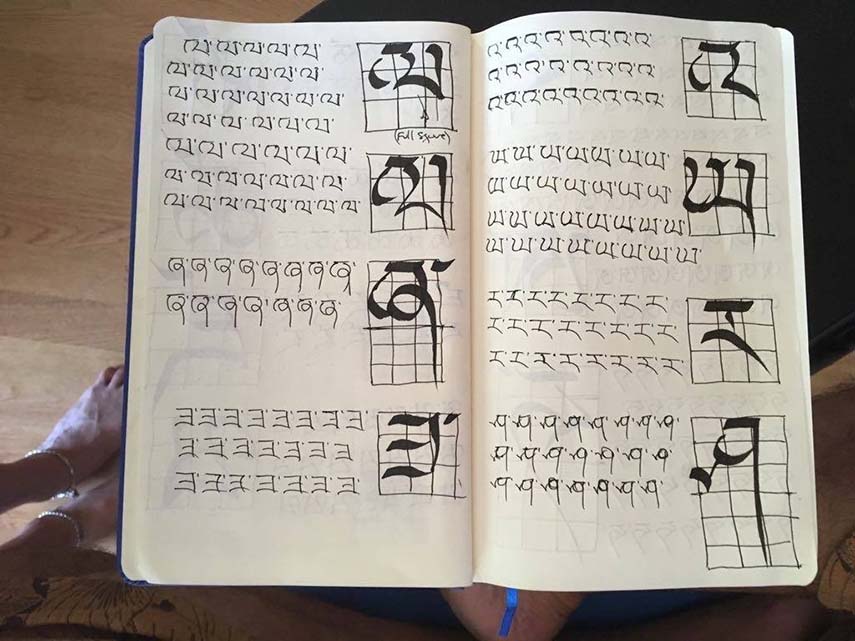 ལ་ལ་ལ་ལ་ལ་
ལ་ལ་ལ་ལ་ལ་ལ་
ལ་ལ་ལ་ལ་ལ་ལ་ལ་
ལ་ལ་ལ་ལ་ལ་ལ་
ལ
(full square)
ལ་ལ་ལ་ལ་ལ་ལ་ལ་
ལ་ལ་ལ་ལ་ལ་ལ་ལ་
ལ་ལ་ལ་ལ་ལ་ལ་ལ་
ལ
ཞ་ཞ་ཞ་ཞ་ཞ་ཞ་ཞ་
ཞ་ཞ་ཞ་ཞ་ཞ་ཞ་ཞ་
ཞ་
ཟ་ཟ་ཟ་ཟ་ཟ་ཟ་ཟ་ཟ་
ཟ་ཟ་ཟ་ཟ་ཟ་ཟ་ཟ་
ཟ་ཟ་ཟ་ཟ་ཟ་ཟ་ཟ་
ཟ་
འ་འ་འ་འ་འ་འ་འ་འ་
འ་འ་འ་འ་འ་འ་འ་འ་
འ་འ་འ་འ་འ་འ་འ་འ་
འ
ཡ་ཡ་ཡ་ཡ་ཡ་ཡ་ཡ་
ཡ་ཡ་ཡ་ཡ་ཡ་ཡ་ཡ་
ཡ་ཡ་ཡ་ཡ་ཡ་ཡ་ཡ་ཡ་
ཡ་ཡ་ཡ་ཡ་ཡ་ཡ་ཡ་ཡ་
ཡ
ར་ར་ར་ར་ར་ར་ར་
ར་ར་ར་ར་ར་ར་ར་
ར་ར་ར་ར་ར་ར་ར་ར་
ར
ཤ་ཤ་ཤ་ཤ་ཤ་ཤ་ཤ་ཤ་
ཤ་ཤ་ཤ་ཤ་ཤ་ཤ་ཤ་
ཤ་ཤ་ཤ་ཤ་ཤ་ཤ་ཤ་
ཤ